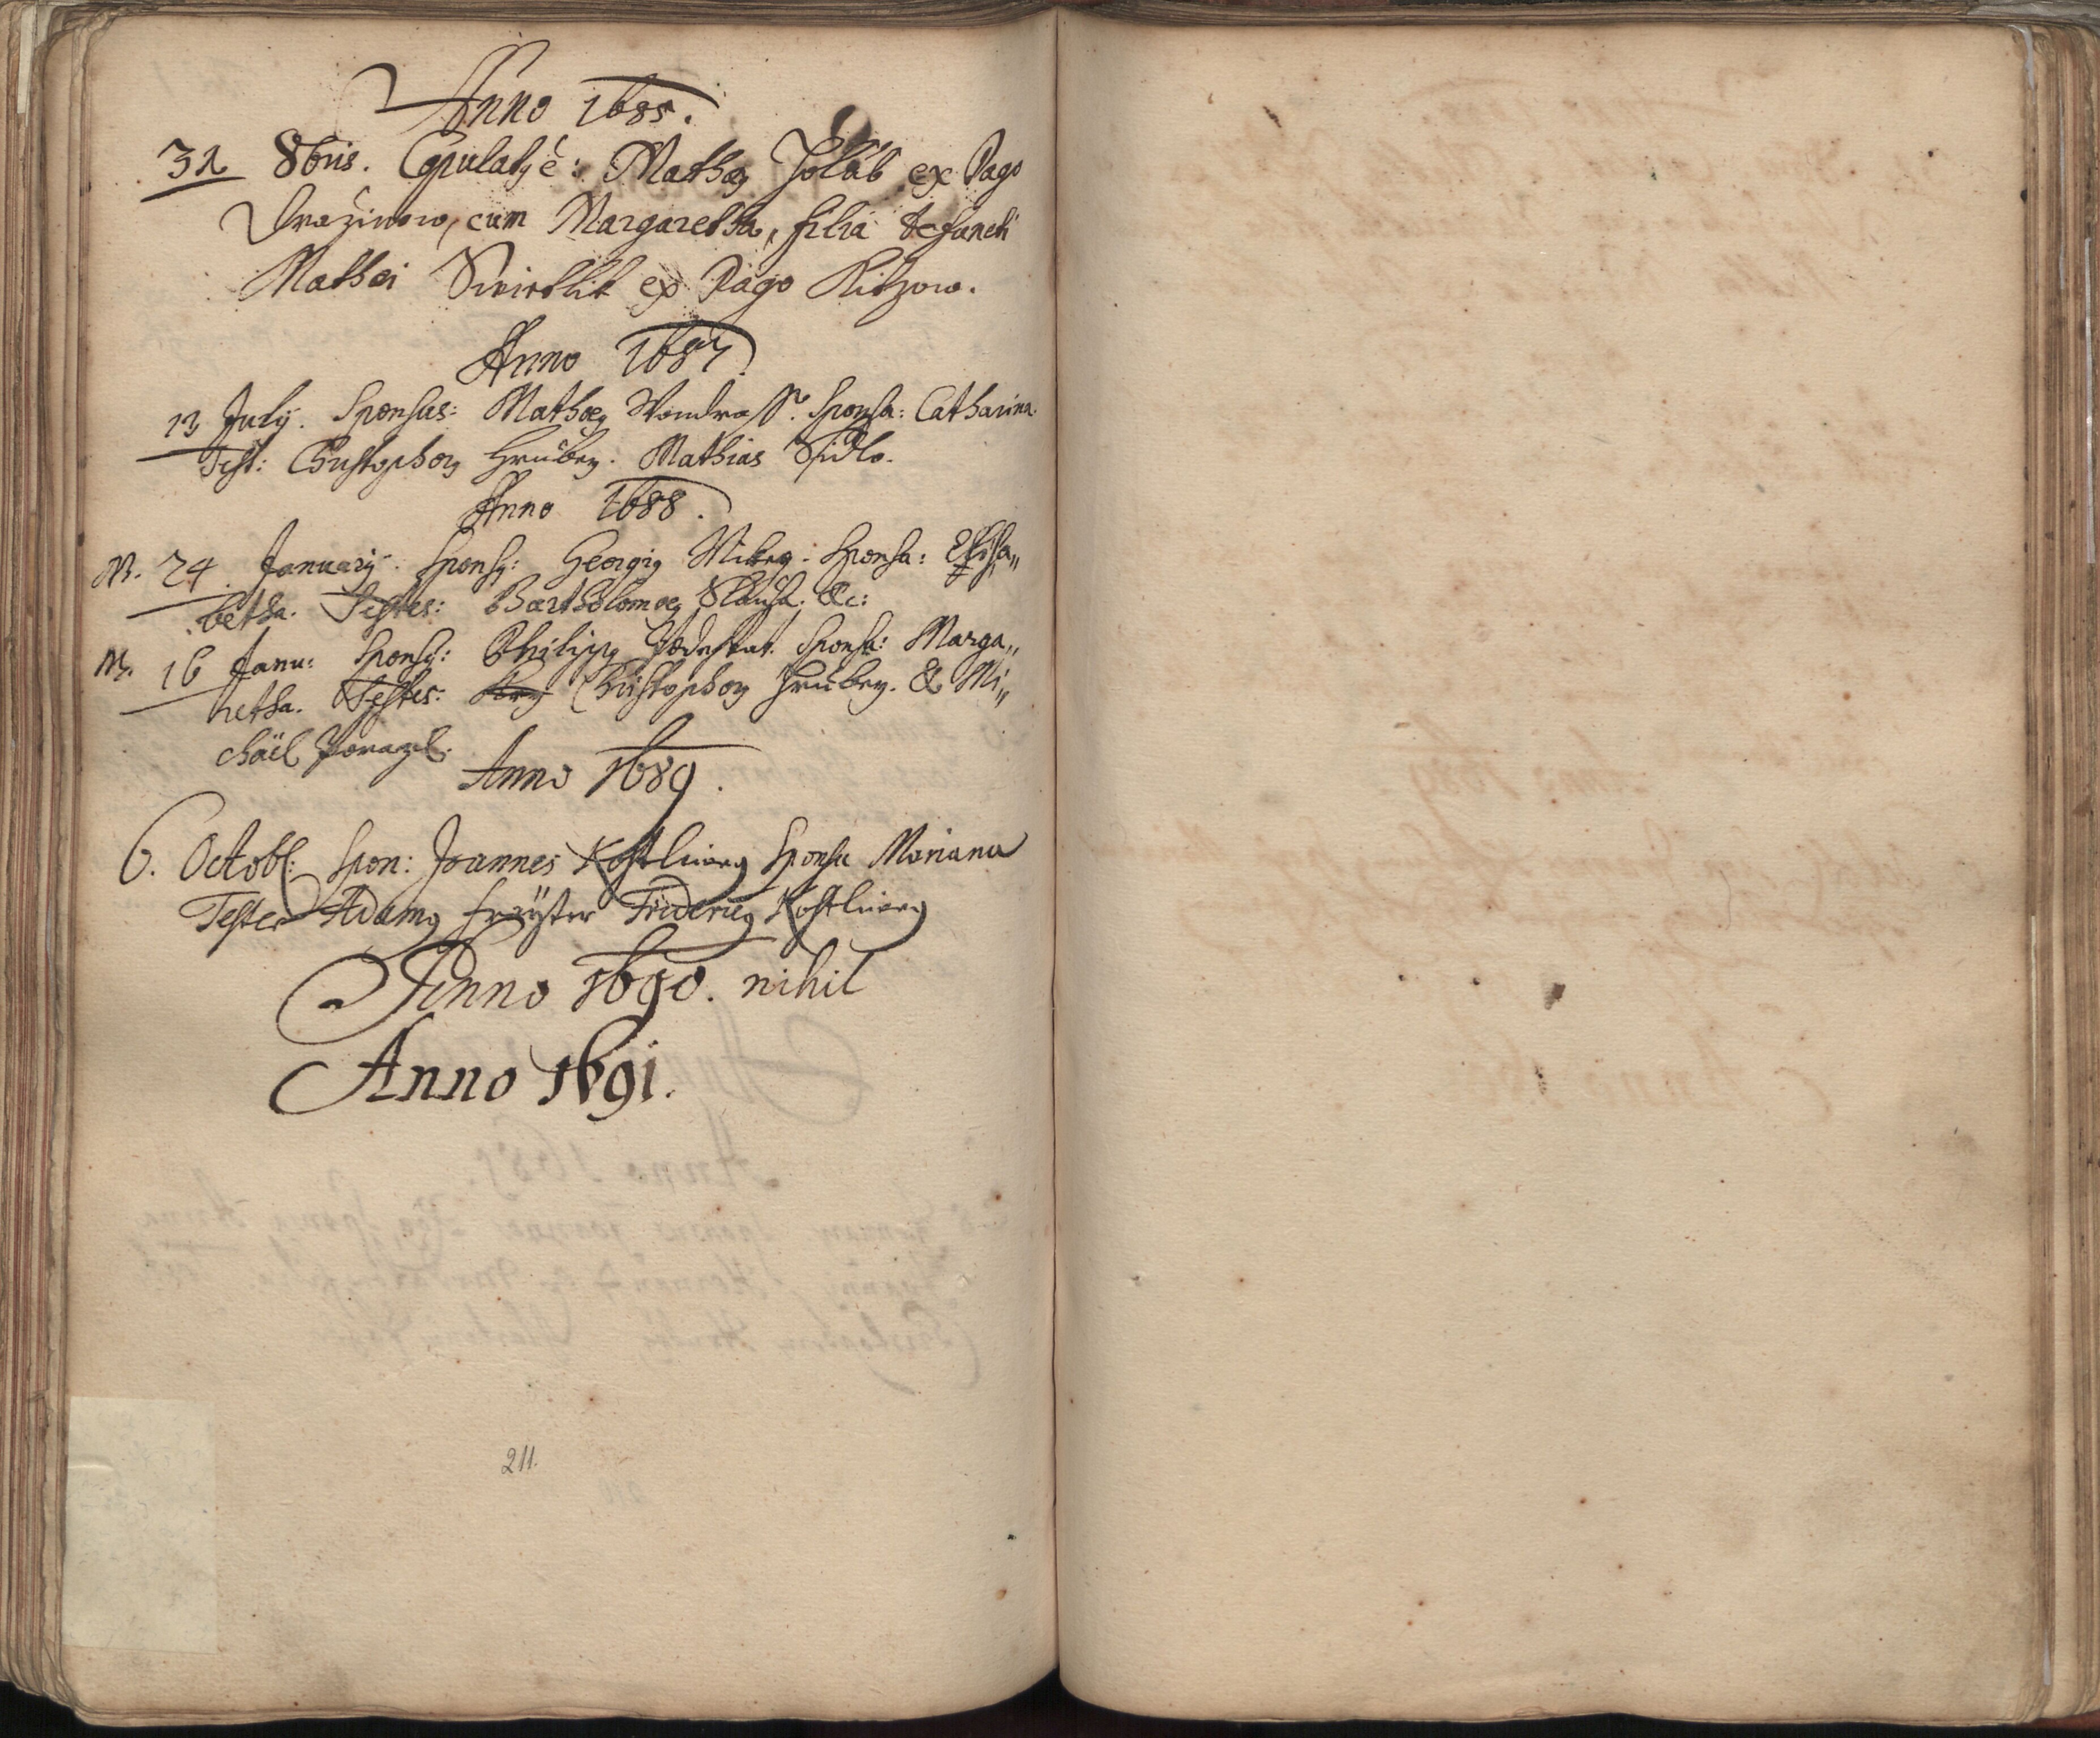 Anno 1685.
31 8bris. Copulatus é: Mathæus Holáb ex Pago
Dražinow, cum Margaretha, filia defuncti
Mathei Swietlik ex Pago Kitzow.
Anno 1687.
13 July. Sponsus: Mathæus Wondrass. Sponsa: Catharina.
Test: Christophorus Hrubey. Mathias Sidlo.
Anno 1688.
24 January. Sponsus: Georgius Sponsa: Elisa„
betha. Testes: Bartholomæus &c:
16 Janu: Sponsus: Philippus Sponsa: Marga„
retha. Testes: Christophorus Hrubey. & Mi„
chäel
Anno 1689.
6. Octob: Spon: Joannes Sponsa Mariana
Testes Adamus Fridericus
Anno 1690. nihil
Anno 1691.
211.